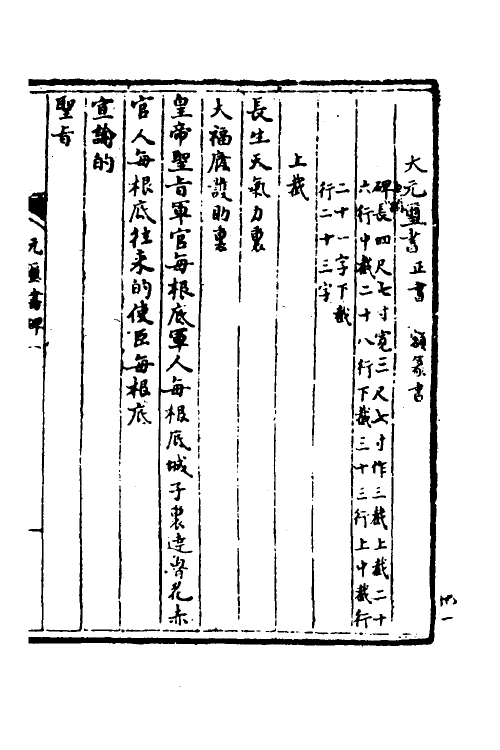 大元璽書 正書 額篆書
碑長四尺七寸寬三尺七寸作三截上截二十
六行中截二十八行下截三十三行上中截行
二十一字下截
行二十三字
上截
長生天氣力裏
大福廕護助裏
皇帝聖旨軍官每根底軍人每根底城子裏達魯花赤
官人每根底往來的使臣每根底
宣諭的
聖旨
元璽書碑一